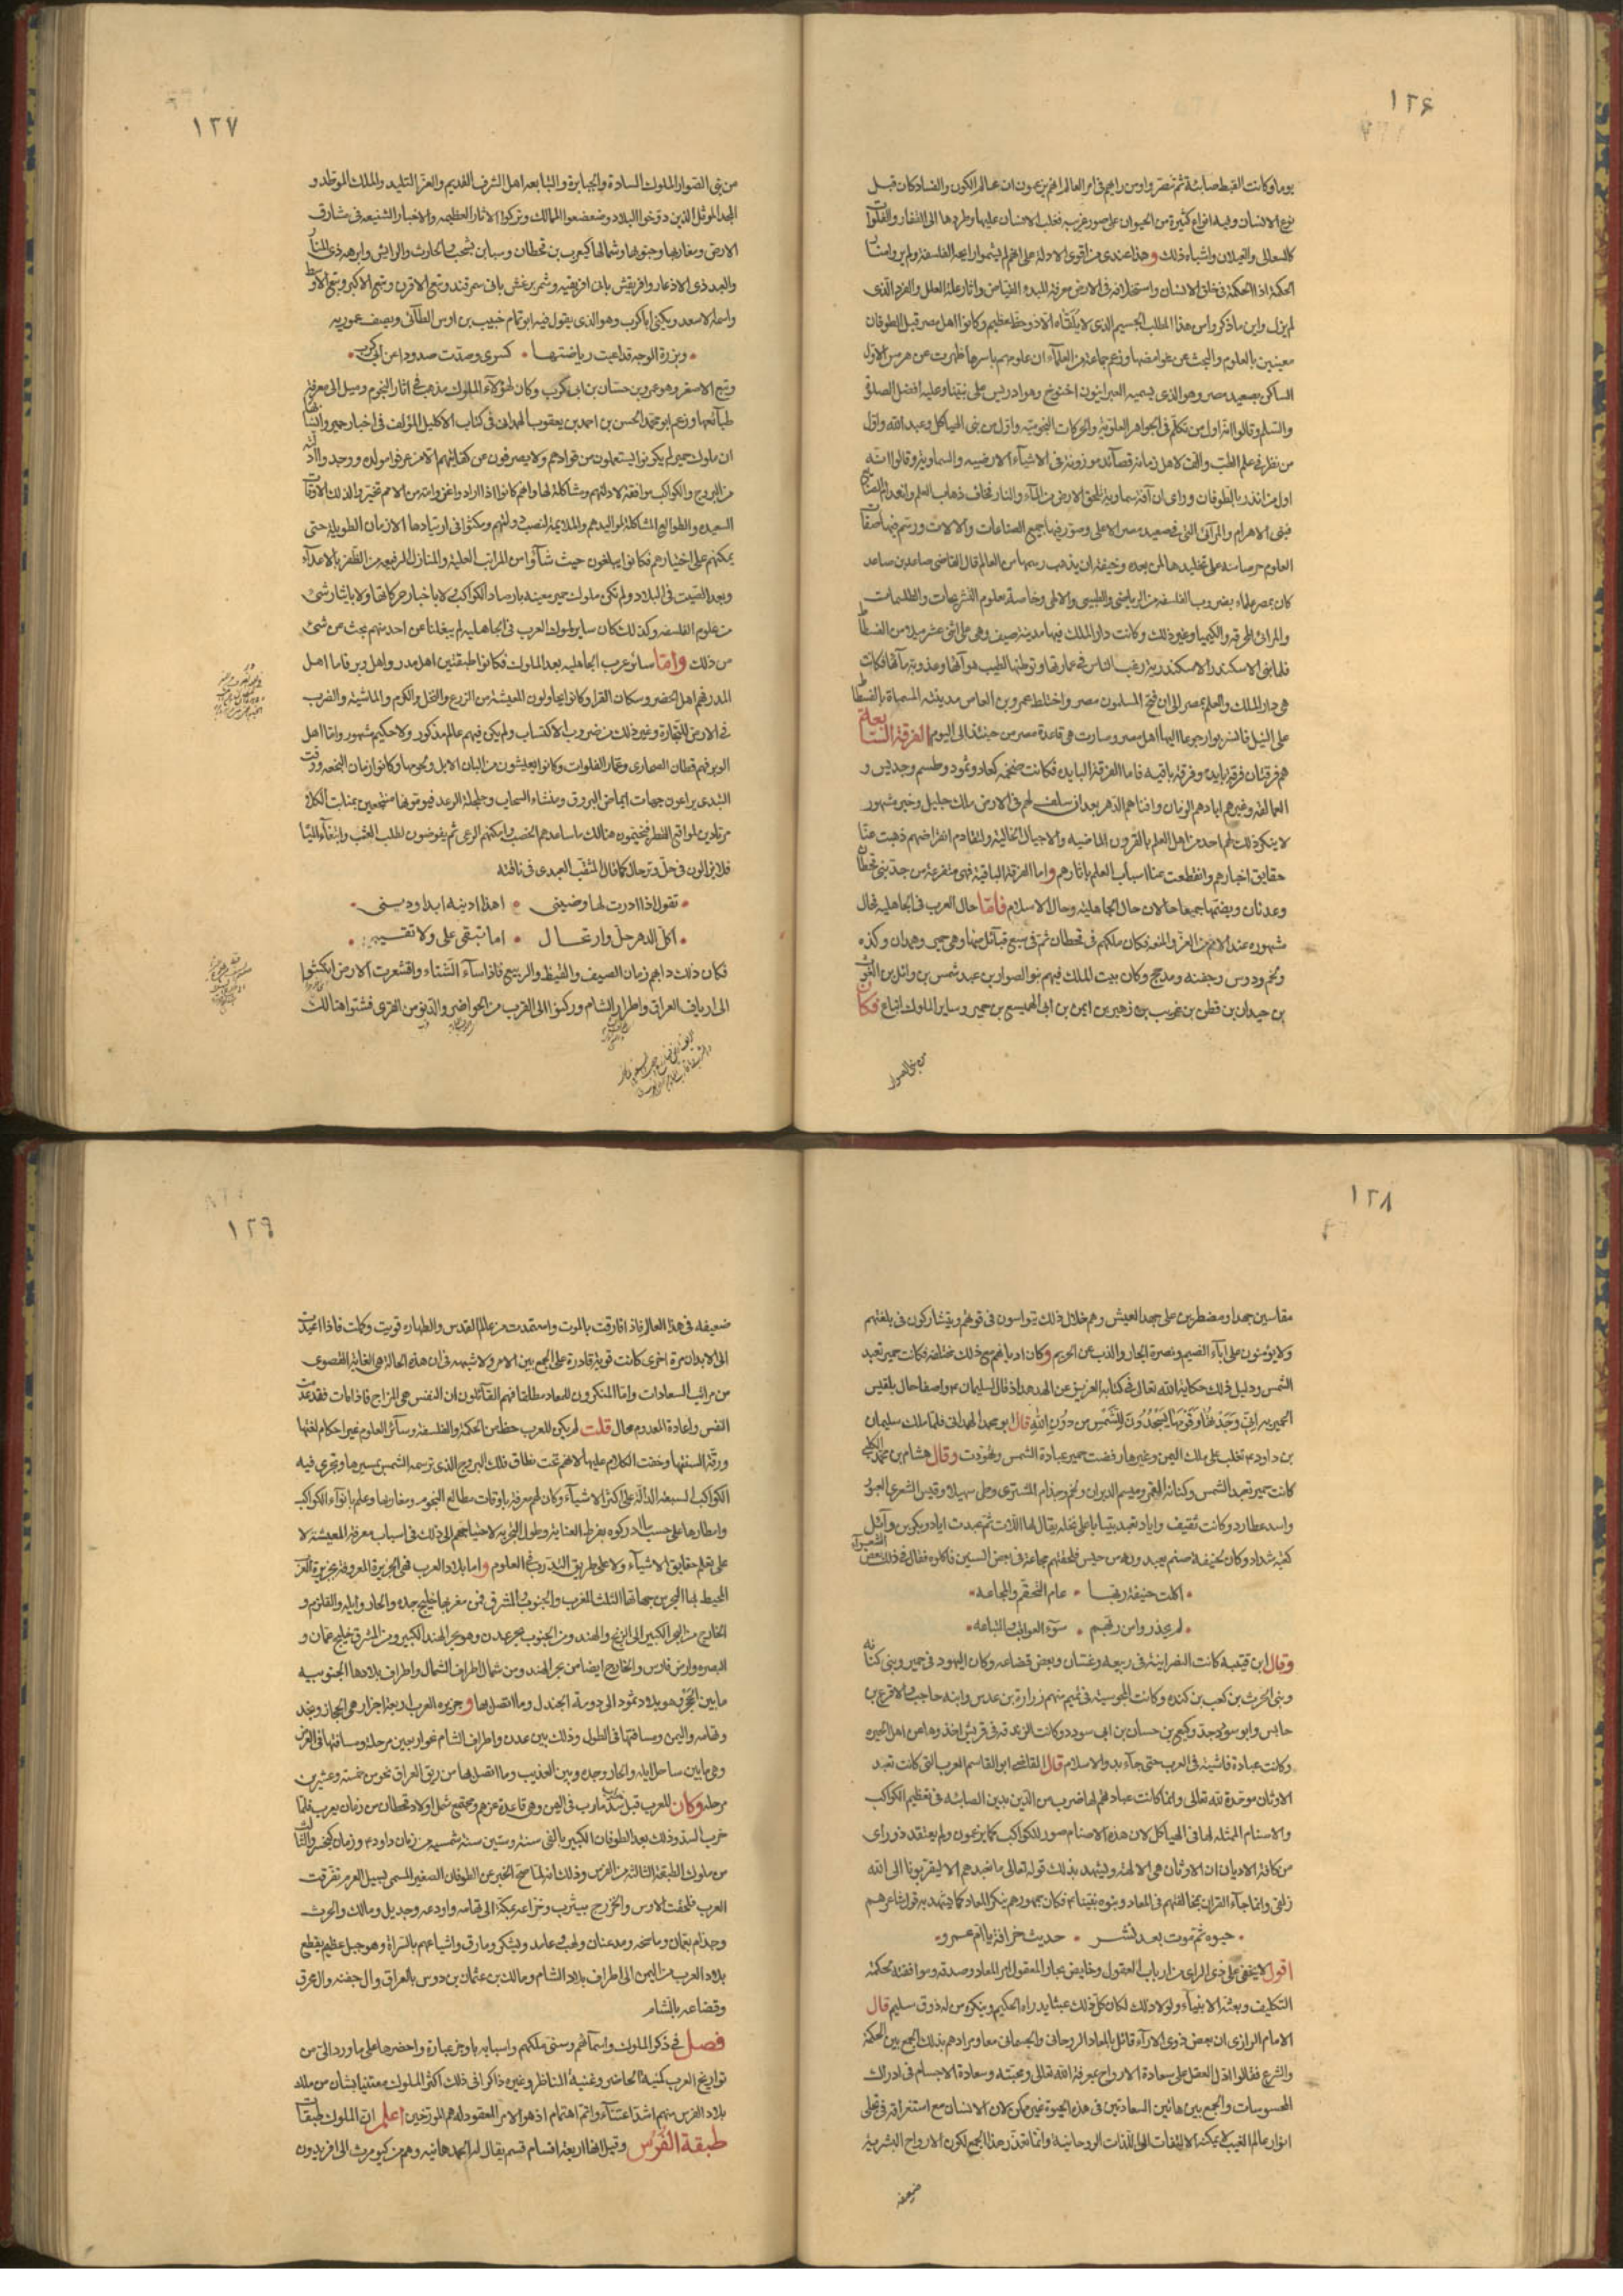 ١٢۶
يوما وكانت القبط صابئة ثم تنصر وادرس رايهم فى امر العالم انهم يزعمون ان عالم الكون والفساد كان قبل
نوع الانسان وفيه انواع كثيرة من الحيوان على صور غريبه فغلب الانسان عليها وطردها الى القفار والفلوات
كالسعالى والغيلان واشباه ذلك وهذا عندى من اقوى الادلة على انهم لم يشموا رايحة الفلسفة ولم يروا منار
الحكمة اذ الحكمة فى خلق الانسان واستخلافه فى الارض معرفة المبدء الفياض واثار علة العلل والفرد الذى
لم يزل واين ماذكر واس هذا المطلب الجسيم الذى لا يلقاه الا ذو حظ عظيم وكانوا اهل مصر قبل الطوفان
معينين بالعلوم والبحث عن غوامضها وزعم جماعة من العلماء ان علومهم باسرها ظهرت عن هرمس الاول
الساكن بصعيد مصر وهو الذى يسميه العبرانيون اخنوخ وهو ادريس على نبينا وعليه افضل الصلوة
والسلم وقالوا انه اول من تكلم فى الجواهر العلوية والحركات النجوميه واول من بنى الهياكل وعبد الله واول
من نظر فى علم الطب والف لاهل زمانه قصائد موزونة فى الاشياء الارضيه والسماوية وقالوا انه
اول من انذر بالطوفان وراى ان آفة سماوية تلحق الارض من الماء والنار فخاف ذهاب العلم وانعدام الصنايع
فبنى الاهرام والبرابى التى فى صعيد مصر الاعلى وصور فيها جميع الصناعات والالات ورسم فيها صفات
العلوم حرصا منه على تخليدها لمن بعده وخيفة ان يذهب رسمها من العالم قال القاضى صاعد بن صاعد
كان بمصر علماء بضروب الفلسفه من الرياضى والطبيعى والالهى وخاصة بعلوم النيرنجات والطلسمات
والمرائى المحرقة والكيميا وغير ذلك وكانت دار الملك فيها مدينة منيف وهى على اثنى عشر ميلا من الفسطاط
فلما بنى الاسكندر الاسكندرية رغب الناس فى عمارتها وتوطنها لطيب هوآئها وعذوبة مآئها فكانت
هى دار الملك والعلم بمصر الى ان فتح المسلمون مصر واختط عمرو بن العاص مدينته المسماة بالفسطاط
على النيل فانتزع وارجوعا اليها اهل مصر وصارت هى قاعدة مصر من حينئذ الى اليوم الفرقة السابعة
هم فرقتان فرقة بايدة وفرقة باقيه فاما الفرقة البايده فكانت ضخمة كعاد وثمود وطسم وجديس و
العمالقه وغيرهم ابادهم الزمان وافناهم الدهر بعد ان سلف لهم فى الارض ملك جليل وخبر مشهور
لا ينكر ذلك لهم احد من اهل العلم بالقرون الماضيه والاجيال الخالية ولتقادم انقراضهم ذهبت عنا
حقايق اخبارهم وانقطعت عنا اسباب العلم باثارهم واما الفرقة الباقية فهى متفرعة من جدين قحطان
وعدنان ويضمها جميعا حالان حال الجاهلية وحال الاسلام فاما حال العرب فى الجاهليه فحال
مشهور عند الامم من العز والمنعه فكان ملكهم فى قحطان ثم فى سبع قبائل منها وهى حمير وهمدان وكنده
ولخم ودوس وجفنه ومذحج وكان بيت الملك فيهم بنو الصوار بن عبد شمس بن وائل بن الغوث
بن حيدان بن قطن بن عريب بن زهير بن ايمن بن ابى الهميسع بن حمير وساير الملوك اتباع فكان
من بنى الصوار
١٢٧
من بنى الصوار الملوك السادة والجبابرة والتبابعه اهل الشرف القديم والعز التليد والملك الموطد و
المجد الموثل الذين دوخوا البلاد وضعضعوا الممالك وتركوا الاثار العظيمه والاخبار الشنيعه فى مشارق
الارض ومغاربها وجنوبها وشمالها كيعرب بن قحطان وسبا بن يشجب والحارث والرايش وابرهه ذى المنار
والعبد ذى الاذعار وافريقش بانى افريقيه وشمر يرعش بانى سمرقند وتبع الاقرن وتبع الاكبر وتبع الاوسط
واسمه اسعد ويكنى ابا كرب وهو الذى يقول فيه ابو تمام حبيب بن اوس الطائى ويصف عموريه
وبرزة الوجه قد اعيت رياضتها • كسرى وصدت صدودا عن ابى كرب
وتبع الاصغر وهو عمرو بن حسان بن ابى كرب وكان لهؤلاء الملوك مذهب فى اثار النجوم وميل الى معرفة
طبائعها وزعم ابو محمد الحسن بن احمد بن يعقوب الهمدانى فى كتاب الاكليل المؤلف فى اخبار حمير وانسابها
ان ملوك حمير لم يكونوا يستعملون من قوادهم ولا يصرفون من كفاتهم الا من عرفوا مولده ووجدوا ادلته
من البروج والكواكب موافقة لادلتهم ومشاكلة لها وانهم كانوا اذا ارادوا غزوا امة من الامم تخيروا لذلك الاوقات
السعيدة والطوالع المشاكلة لمواليدهم والملايمة لنصب دولتهم ويمكثوا فى ارتيادها الازمان الطويلة حتى
يمكنهم على اختيارهم فكانوا يبلغون حيث شاؤا من المراتب العلية والمنازل الرفيعه من الظفر بالاعداء
وبعد الصيت فى البلاد ولم تكن ملوك حمير معنيه بارصاد الكواكب ولا باخبار حركاتها ولا بايثار شئ
من علوم الفلسفه وكذلك كان ساير ملوك العرب فى الجاهليه لم يبلغنا عن احد منهم بحث عن شئ
من ذلك واما سائر عرب الجاهليه بعد الملوك فكانوا طبقتين اهل مدر واهل وبر فاما اهل
المدر فهم اهل الحضر وسكان القرا وكانوا يحاولون المعيشة من الزرع والنخل والكرم والماشية والضرب
فى الارض للتجارة وغير ذلك من ضروب الاكتساب ولم يكن فيهم عالم مذكور ولا حكيم مشهور واما اهل
الوبر فهم قطان الصحارى وعمار الفلوات وكانوا يعيشون من البان الابل ولحومها وكانوا زمان النجعه ووقت
التبدى يراعون جهات ايماض البروق ومنشاء السحاب وجلجلة الرعد فيؤمونها منتجعين بمنابت الكلاء
مرتادين لمواقع القطر فيخيمون هنالك ما ساعدهم الخصب وامكنهم الرعى ثم يقوضون لطلب العشب وابتغاء المياه
فلا يزالون فى حل وترحال كما قال المثقب العبدى فى ناقته
تقول اذا درت لها وضينى • اهذا دينه ابدا ودينى
اكل الدهر حل وارتحال • اما تبقى على ولا تقينى
فكان ذلك دابهم زمان الصيف والقيظ والربيع فاذا ساء الشتاء واقشعرت الارض انكمشوا
الى ارياف العراق واطراف الشام وركنوا الى القرب من الحواضر والدنو من القرى فشتوا هنالك
١٢٨
مقاسين جهدا ومضطرين على جهد العيش وهم خلال ذلك يتواسون فى قوتهم ويتشاركون فى بلغتهم
ولا يونون على اباء الضيم ونصرة الجار والذب عن الحريم وكان اديانهم مع ذلك مختلفة فكانت حمير تعبد
الشمس ودليل ذلك حكاية الله تعالى فى كتابه العزيز عن الهدهد اذ قال لسليمان م واصفا حال بلقيس
الحميريه انى وجدتها وقومها يسجدون للشمس من دون الله قال ابو محمد الهمدانى فلما ملك سليمان
بن داود م تغلب على ملك اليمن وغيرها رفضت حمير عبادة الشمس وتهودت وقال هشام بن محمد الكلبى
كانت حمير تعبد الشمس وكنانة القمر وميسم الدبران ولخم وجذام المشترى وطى سهيلا وقيس الشعرى العبور
واسد عطارد وكانت ثقيف واياد تعبد بيتا باعلى نخله يقال لها اللات ثم عبدت اياد وبكر بن وائل
كعبة شداد وكان لحنيفة صنم يعبدونه من حيس فلحقتهم مجاعة فى بعض السنين فاكلوه فقال فى ذلك بعض الشعراء
اكلت حنيفة ربها • عام التقحم والمجاعه
لم يحذروا من ربهم • سوء العواقب والتباعه
وقال ابن قتيبه كانت النصرانية فى ربيعه وغسان وبعض قضاعه وكان اليهود فى حمير وبنى كنانه
وبنى الحرث بن كعب بن كنده وكانت المجوسية فى تميم منهم زرارة بن عدس وابنه حاجب والاقرع بن
حابس وابو سود جد وكيع بن حسان بن ابى سود وكانت الزندقه فى قريش اخذوها من اهل الحيره
وكانت عبادة فاشية فى العرب حتى جاء بدو الاسلام قال القاضى ابو القاسم العرب التى كانت تعبد
الاوثان موحدة لله تعالى وانما كانت عبادتهم لها ضرب من الدين بدين الصابئه فى تعظيم الكواكب
والاسنام الممثله لها فى الهياكل لان هذه الاصنام صور للكواكب كما يزعمون ولم يعتقد ذو راى
من كافة الاديان ان الاوثان هى الالهة ويشهد بذلك قوله تعالى ما نعبدهم الا ليقربونا الى الله
زلفى وانما جاء القران بمخالفتهم فى المعاد ونبوه نبينا م فكان جمهورهم ينكر المعاد كما يشهد به قول شاعرهم
حيوه ثم موت بعد نشر • حديث خرافة يا ام عمرو
اقول لا يخفى على ذى الراى من ارباب العقول المعاد وصدقه وموافقته لحكمة
التكليف وبعثة الانبياء ولولا ذلك لكان كل ذلك عبثا يدراه الحكيم وينكره من له ذوق سليم قال
الامام الرازى ان بعض ذوى الاراء قائل بالمعاد الروحانى والجسمانى معا ومرادهم بذلك الجمع بين الحكمة
والشرع فقالوا دل العقل على سعادة الارواح بمعرفة الله تعالى ومحبته وسعادة الاجسام فى ادراك
المحسوسات والجمع بين هاتين السعادتين فى هذه الحيوة غير ممكن لان الانسان مع استغراقه فى تجلى
انوار عالم الغيب لا يمكنه الالتفات الى اللذات الروحانية وانما تعذر هذا الجمع لكون الارواح البشرية
ضعيفه
١٢٩
ضعيفه فى هذا العالم فاذا فارقت بالموت واستمدت من عالم القدس والطهاره قويت وكملت فاذا اعيدت
الى الابدان مرة اخرى كانت قوية قادرة على الجمع بين الامر ولا شبهه فى ان هذه الحالة هى الغاية القصوى
من مراتب السعادات واما المنكرون للمعاد مطلقا فهم القائلون ان النفس هى المزاج فاذا مات فقد عدمت
النفس واعادة المعدوم محال قلت لم يكن للعرب حظ من الحكمة والفلسفة وسائر العلوم غير احكام لغتها
ورقة السنتها وخفت الكلام عليها لانهم تحت نطاق فلك البروج الذى ترسمه الشمس بمسيرها وتجرى فيه
الكواكب السبعه الدالة على اكثر الاشياء وكان لهم معرفة باوقات مطالع النجوم ومغاربها وعلم بانواء الكواكب
وامطارها على حسب ما ادركوه بفرط العناية وطول التجربه لاحتياجهم الى ذلك فى اسباب معرفة المعيشة لا
على تعلم حقايق الاشياء ولا على طريق التدرب فى العلوم واما بلاد العرب فهى الجزيرة المعروفة بجزيرة العرب
المحيط بها البحر من جهاتها الثلث المغرب والجنوب والمشرق فمن مغربها خليج جده والجار وايله والقلزم و
الخارج من البحر الكبير الى الزنج والهند ومن الجنوب بحر عدن وهو بحر الهند الكبير ومن المشرق خليج عمان و
البصره وارض فارس والخارج ايضا من بحر الهند ومن شمالها طراف الشمال واطراف بلادها الجنوبيه
ما بين الحجر وهو بلاد ثمود الى دومة الجندل وما اتصل بها و جزيره العرب اربعة اجزاء هى الحجاز ونجد
وتهامه واليمن ومسافتها فى الطول وذلك بين عدن واطراف الشام نحو اربعين مرحلة ومسافتها فى العرض
وهى ما بين ساحل ايله والجار وجده وبين العذيب وما اتصل بها من ريف العراق نحو من خمسة وعشرين
مرحله وكان للعرب قبل خراب سد مارب فى اليمن وهى قاعدة عزهم ومجتمع شمل اولاد قحطان من زمان يعرب فلما
خرب السد وذلك بعد الطوفان الكبير بالفى سنة وستين سنة شمسيه من زمان داود م وزمان كيخسرو الثالث
من ملوك الطبقة الثالثة من الفرس وذلك انه لما صح الخبر عن الطوفان الصغير المسمى بسيل العرم تفرقت
العرب فلحقت الاوس والخزرج بيثرب وخزاعه بمكة الى تهامه وجديل ومالك والحرث
وجذام بعمان وماسخه وميدعنان ولهب وغامد ويشكر ومارق واشياعهم بالسراة وهو جبل عظيم يقطع
بلاد العرب من اليمن الى اطراف بلاد الشام ومالك بن عثمان بن دوس بالعراق وال جفنه وال محرق
وقضاعه بالشام
فصل فى ذكر الملوك واسمائهم وسنى ملكهم واسبابه باوجز عبارة واحضرها على ما ورد الى من
تواريخ العرب كنيه الحاضر وغنية الناظر وغيره ذاكرا فى ذلك اكثر الملوك معتنيا بشان من ملك
بلاد الفرس منهم اشد اعتناء واتم اهتمام اذ هو الامر المعقود له هم المورخين اعلم ان الملوك طبقات
طبقة الفرس وقيل انها اربعة اقسام قسم يقال لهم وهم من كيومرث الى افريدون